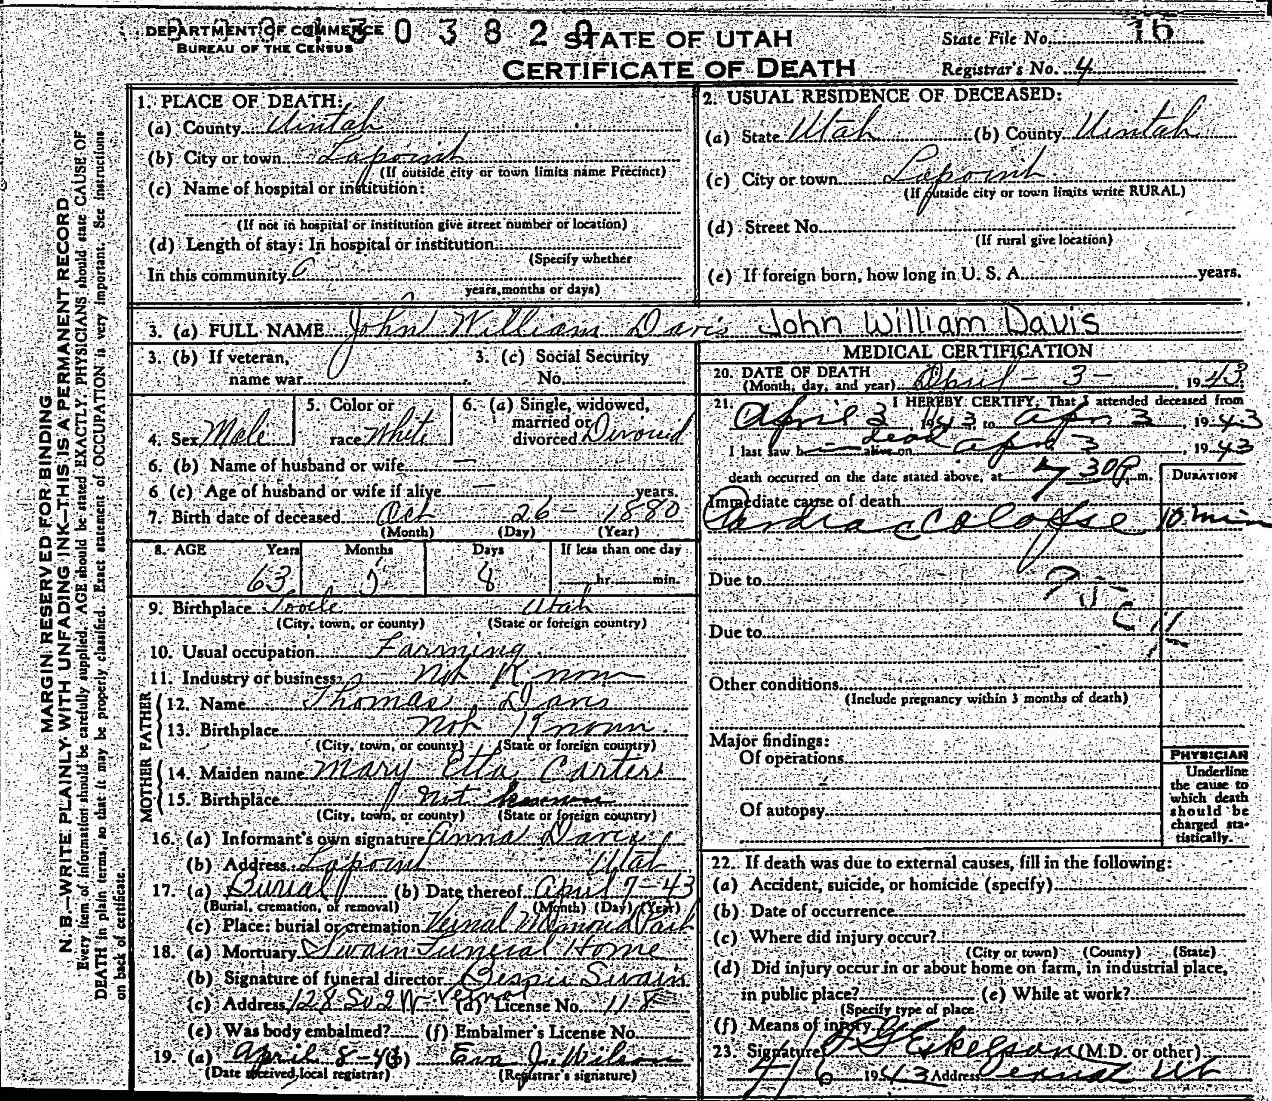 DEPARTMENT OF COMMERCE
BUREAU OF THE CENSUS
3 0 3 8 2 0
STATE OF UTAH
CERTIFICATE OF DEATH
State File No. 16
Registrar's No. 4
MARGIN RESERVED FOR BINDING
N. B.—WRITE PLAINLY, WITH UNFADING INK—THIS IS A PERMANENT RECORD
Every item of information should be carefully supplied. AGE should be stated EXACTLY. PHYSICIANS should state CAUSE OF
DEATH in plain terms, so that it may be properly classified. Exact statement of OCCUPATION is very important. See instructions
on back of certificate.
1. PLACE OF DEATH:
(a) County Uintah
(b) City or town Lapoint
(If outside city or town limits name Precinct)
(c) Name of hospital or institution:
(If not in hospital or institution give street number or location)
(d) Length of stay: In hospital or institution
(Specify whether
In this community
years, months or days)
2. USUAL RESIDENCE OF DECEASED:
(a) State Utah (b) County Uintah
(c) City or town Lapoint
(If outside city or town limits write RURAL)
(d) Street No.
(If rural give location)
(e) If foreign born, how long in U. S. A. years.
3. (a) FULL NAME John William Davis John William Davis
3. (b) If veteran,
name war
3. (c) Social Security
No.
4. Sex Male
5. Color or
race White
6. (a) Single, widowed,
married or
divorced Divorcid
6. (b) Name of husband or wife —
6 (c) Age of husband or wife if alive — years.
7. Birth date of deceased Oct 26 - 1880
(Month) (Day) (Year)
8. AGE Years Months Days If less than one day
63 5 8 hr. min.
9. Birthplace Tooele Utah
(City, town, or county) (State or foreign country)
10. Usual occupation Farming
11. Industry or business Not Known
FATHER
12. Name Thomas Davis
13. Birthplace Not Known
(City, town, or county) (State or foreign country)
MOTHER
14. Maiden name Mary Etta Carter
15. Birthplace Not known
(City, town, or county) (State or foreign country)
16. (a) Informant's own signature Anna Davis
(b) Address Lapoint Utah
17. (a) Burial (b) Date thereof April 7-43
(Burial, cremation, or removal) (Month) (Day) (Year)
(c) Place: burial or cremation Vernal Memorial Park
18. (a) Mortuary Swain Funeral Home
(b) Signature of funeral director Bessie Swain
(c) Address 128 So 2 W- Vernal (d) License No. 118
(e) Was body embalmed? (f) Embalmer's License No.
19. (a) April 8-43 (b) Eva J. Wilson
(Date received local registrar) (Registrar's signature)
MEDICAL CERTIFICATION
20. DATE OF DEATH
(Month, day, and year) April - 3 - , 1943
21. I HEREBY CERTIFY, That I attended deceased from
April 3, 1943, to Apr 3, 1943
I last saw h dead alive on Apr 3, 1943
death occurred on the date stated above, at 7 30 P. m.
DURATION
Immediate cause of death
Cardiac Colapse 10 min
Due to
Due to
Other conditions
(Include pregnancy within 3 months of death)
Major findings:
Of operations
Of autopsy
PHYSICIAN
Underline
the cause to
which death
should be
charged sta-
tistically.
22. If death was due to external causes, fill in the following:
(a) Accident, suicide, or homicide (specify)
(b) Date of occurrence
(c) Where did injury occur?
(City or town) (County) (State)
(d) Did injury occur in or about home on farm, in industrial place,
in public place? (e) While at work?
(Specify type of place
(f) Means of injury
23. Signature Eskelson (M.D. or other)
4/6 1943 Address Vernal Ut